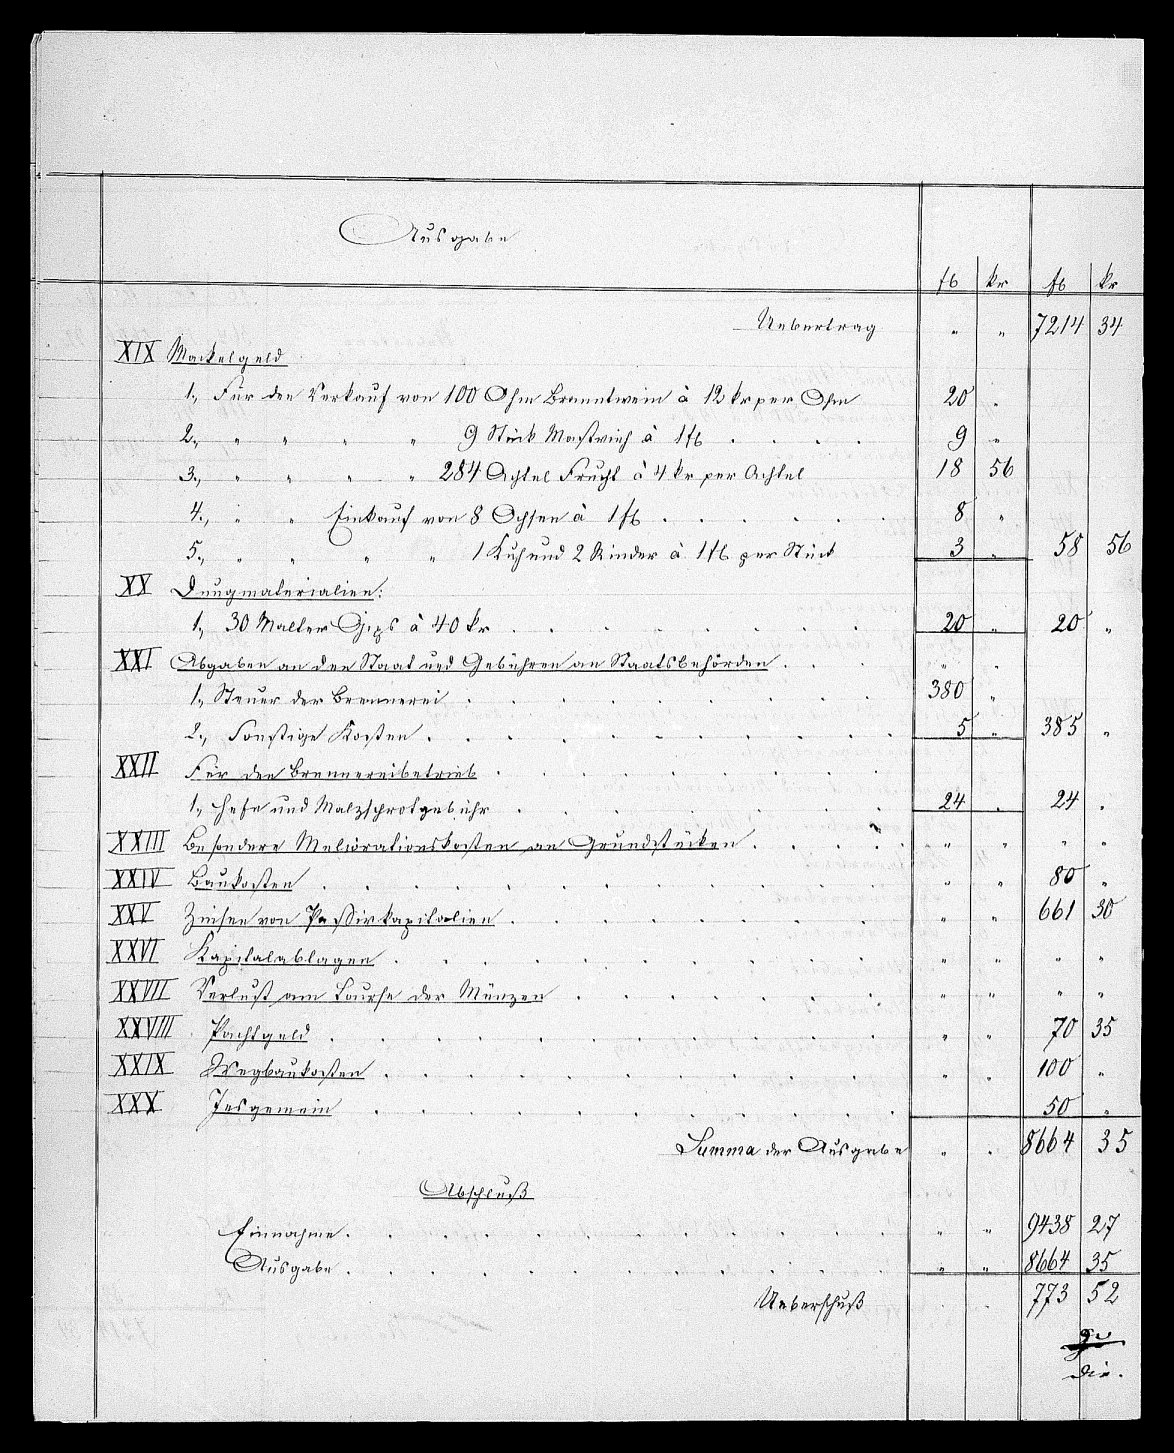 Ausgabe
fl kr fl kr
Uebertrag " " 7214 34
XIX Mackelgeld
1., Für den Verkauf von 100 Ohm Branntwein à 12 kr per Ohm 20 "
2., " " " " 9 Stück Mastvieh à 1 fl . . . . 9 "
3., " " " " 284 Achtel Frucht à 4 kr per Achtel 18 56
4., " " Einkauf von 8 Ochsen à 1 fl . . . . . . 8 "
5., " " " " 1 Kuh und 2 Rinder à 1 fl per Stück 3 " 58 56
XX Dungmaterialien:
1., 30 Malter Gips à 40 kr . . . . . . . . 20 " 20 "
XXI Abgaben an den Staat und Gebühren an Staatsbehörden . . . " "
1., Steuer der Brennerei . . . . . . . . . 380 "
2., Sonstige Kosten . . . . . . . . . . 5 " 385 "
XXII Für den Brennereibetrieb . . . . . . . . .
1., Hefe und Malzschrotgebühr . . . . . . . 24 " 24 "
XXIII Besondere Meliorationskosten an Grundstücken . . . . . " " " "
XXIV Baukosten . . . . . . . . . . . " " 80 "
XXV Zinsen von Passivkapitalien . . . . . . . . " " 661 30
XXVI Kapitalablagen . . . . . . . . . . " " " "
XXVII Verlust am Course der Münzen . . . . . . . " " " "
XXVIII Pachtgeld . . . . . . . . . . . " " 70 35
XXIX Wegbaukosten . . . . . . . . . . " " 100 "
XXX Insgemein . . . . . . . . . . . 50 "
Summa der Ausgabe " " 8664 35
Abschluß
Einnahme . . . . . . . . . . . " " 9438 27
Ausgabe . . . . . . . . . . . " " 8664 35
Ueberschuß " " 773 52
die.